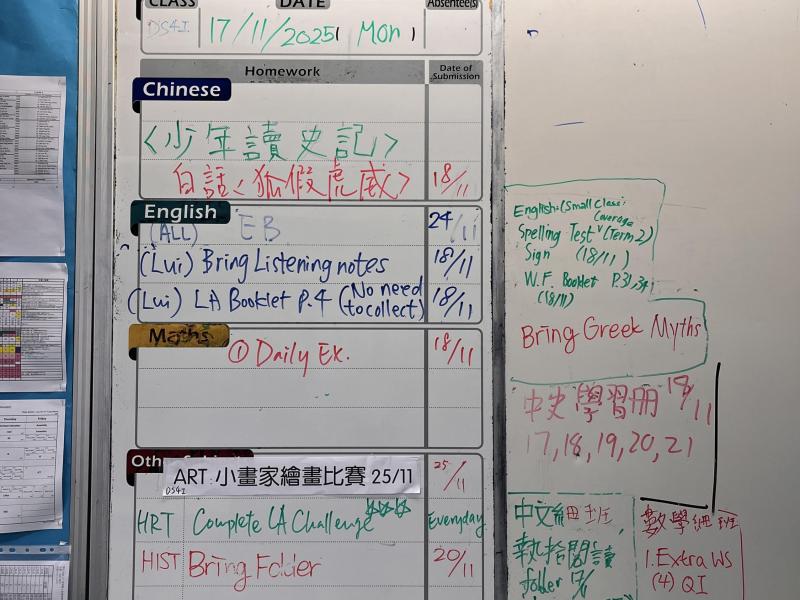 CLASS DATE Absentee(s)
DS4I 17/11/2025 (Mon)
Homework Date of Submission
Chinese
<少年讀史記>
白話<狐假虎威> 18/11
English
(ALL) EB 24/11
(Lui) Bring Listening notes 18/11
(Lui) LA Booklet P.4 (No need to collect) 18/11
Maths
① Daily Ex. 18/11
ART 小畫家繪畫比賽 25/11 25/11
DS4I
HRT Complete LA Challenge Everyday
HIST Bring Folder 20/11
English (Small Class:
Coverage
Spelling Test (Term 2)
Sign (18/11)
W.F. Booklet P.31,34
(18/11)
Bring Greek Myths
中史學習冊 18/11
17,18,19,20,21
中文細班
執拾閱讀
folder
數學細班
1. Extra WS
(4) Q1